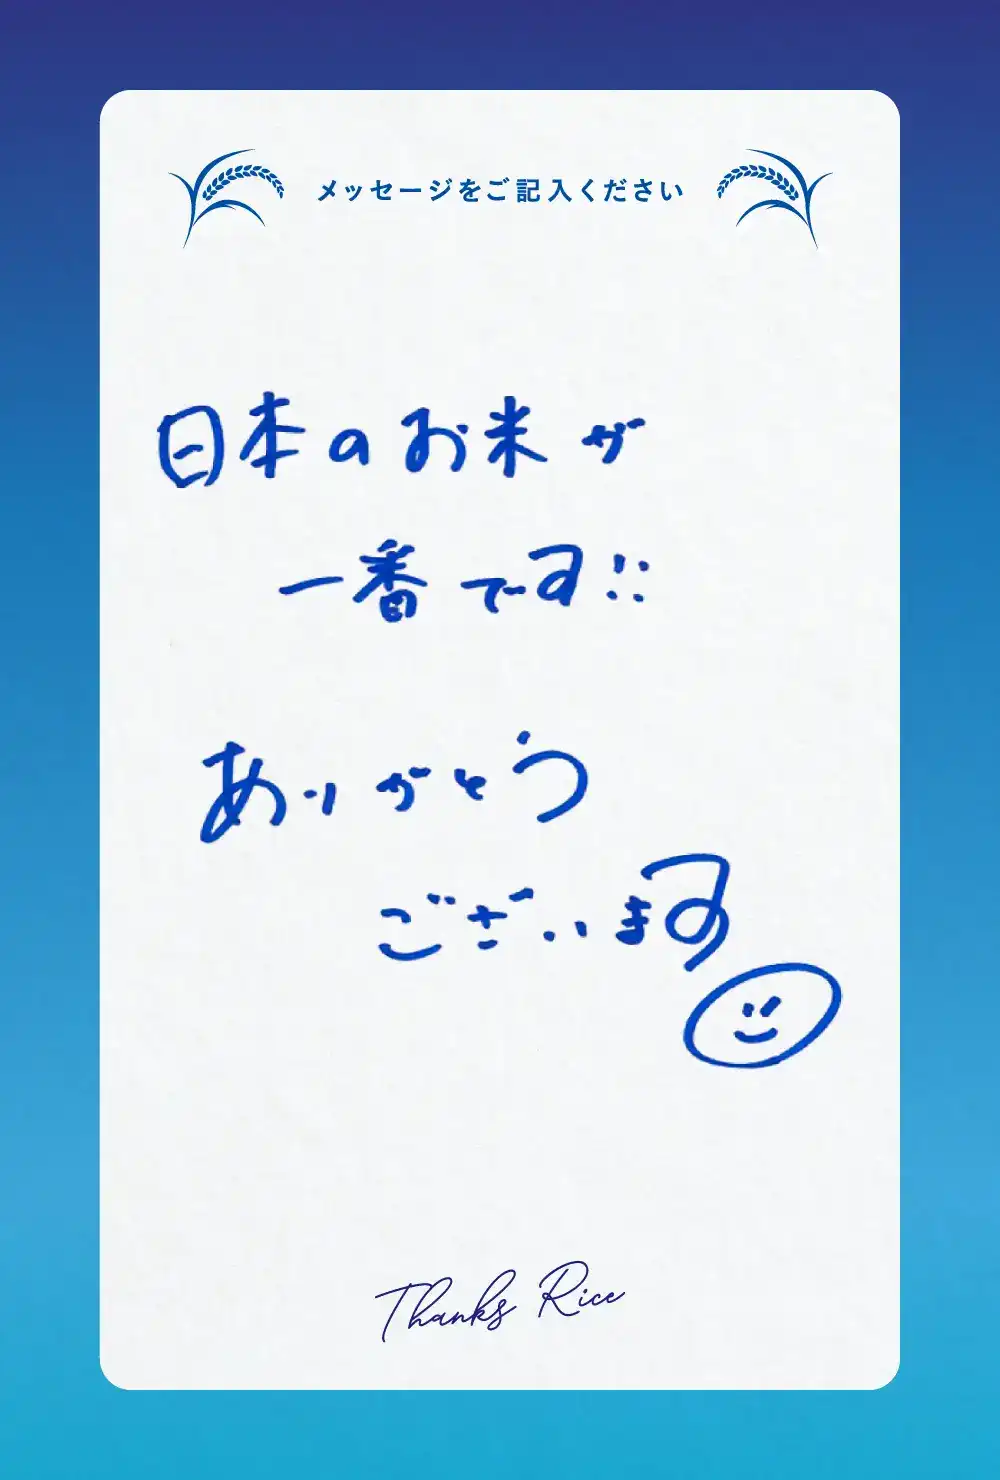 メッセージをご記入ください
日本のお米が
一番です!!
ありがとう
ございます
Thanks Rice